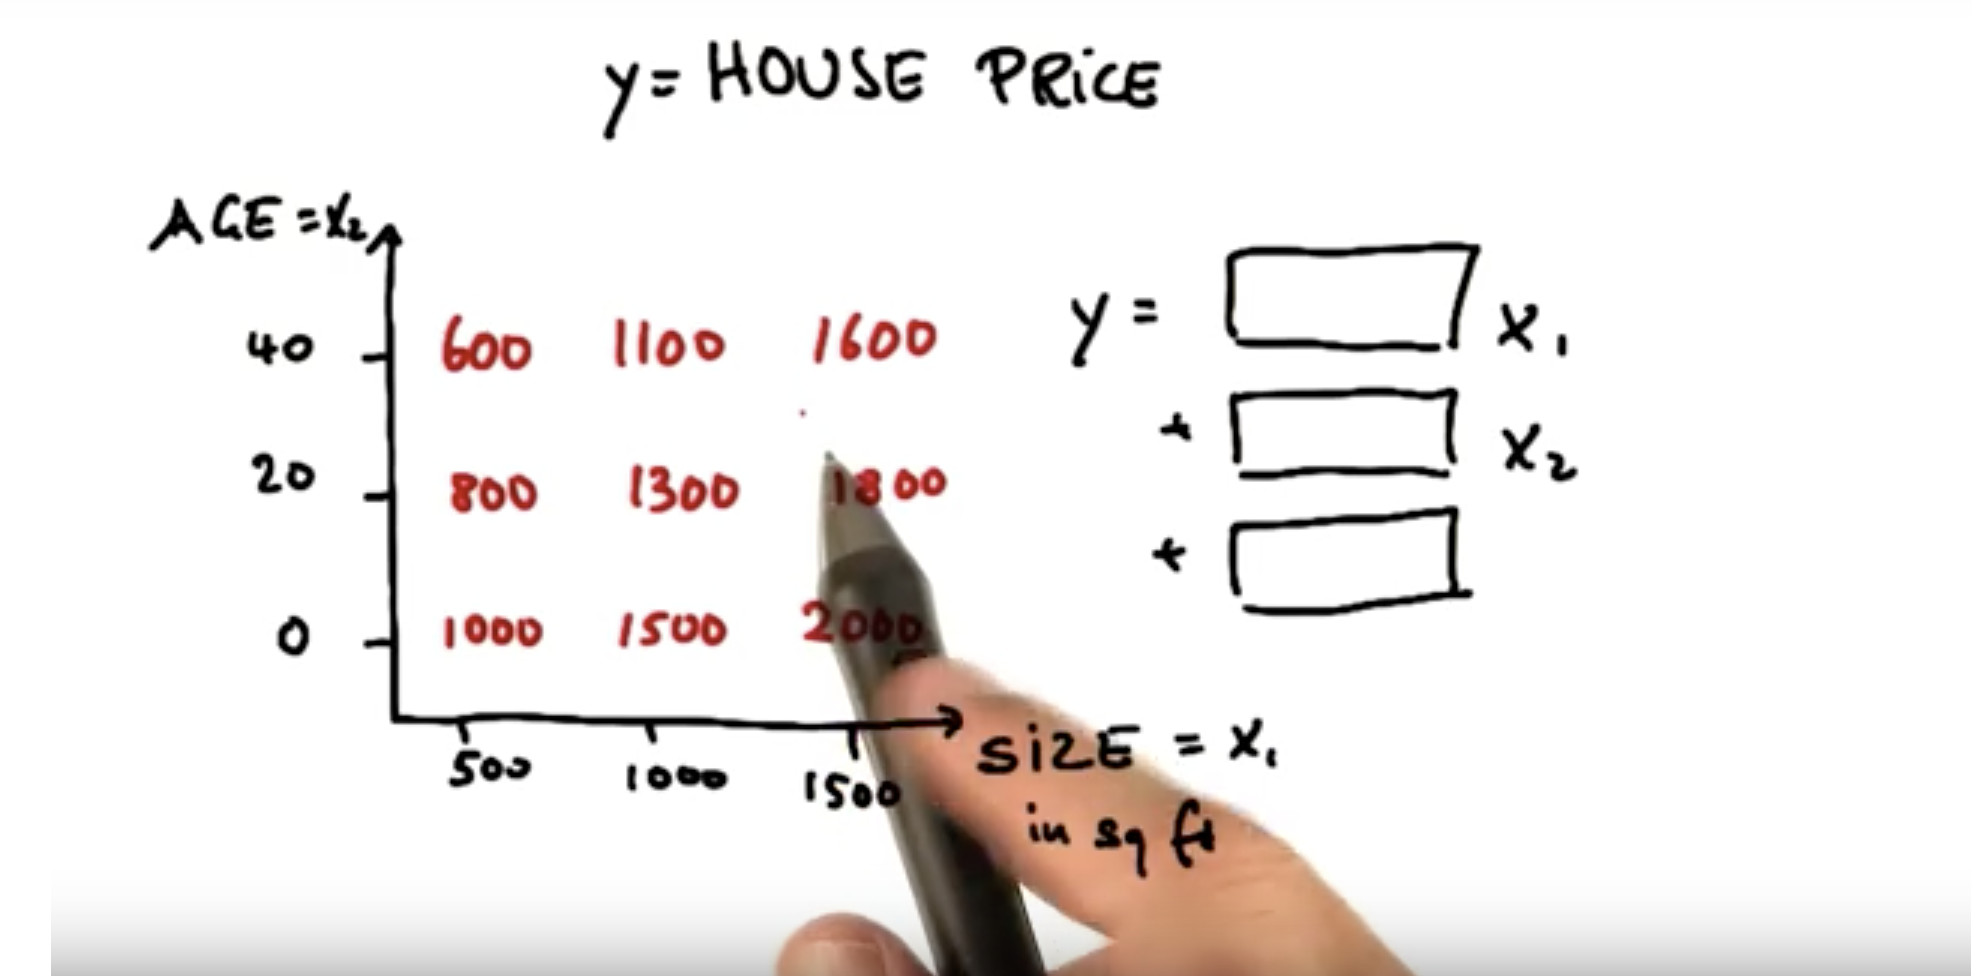 y = HOUSE PRiCE
AGE = x₂
40 600 1100 1600
20 800 1300 1800
0 1000 1500 2000
500 1000 1500
SiZE = x₁
in sq ft
y = x₁
+ x₂
+